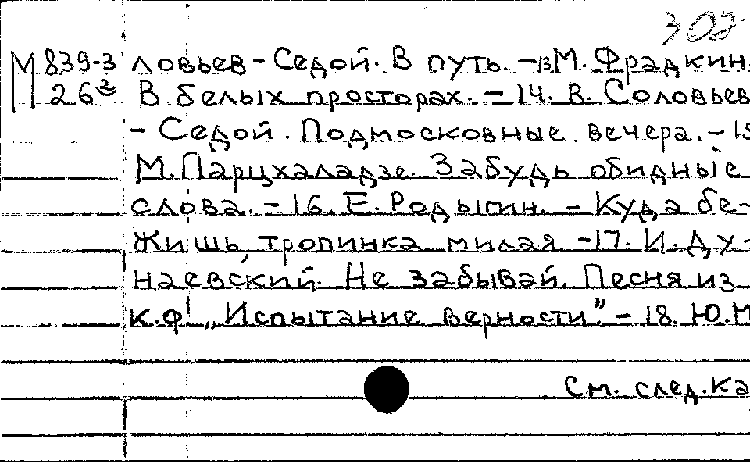 302
М 839-3 ловьев-Седой. В путь. -13 М. Фрадкин.
26³ В белых просторах. - 14. В. Соловьев
- Седой. Подмосковные вечера. - 15
М. Парцхаладзе. Забудь обидные
слова. - 16. Е. Родыгин. - Куда бе-
жишь, тропинка милая - 17. И. Ду-
наевский. Не забывай. Песня из
к.ф! „Испытание верности". - 18. Ю. М
См. след. ка